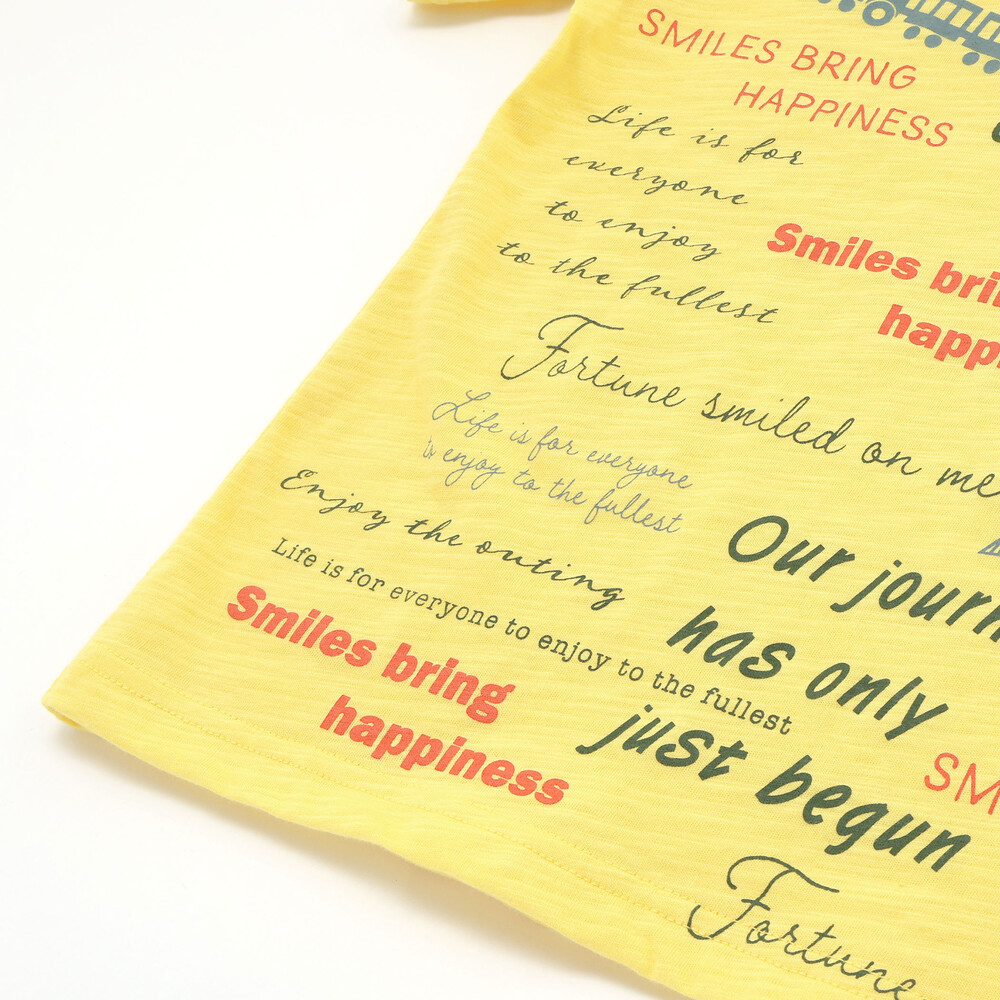 SMILES BRING
HAPPINESS
Life is for
everyone
to enjoy
to the fullest
Smiles
happ
Fortune smiled on me
Life is for everyone
to enjoy to the fullest
Enjoy the outing
Life is for everyone to enjoy to the fullest
Smiles bring
happiness
Our journ
has only
just begun
SM
Fortune